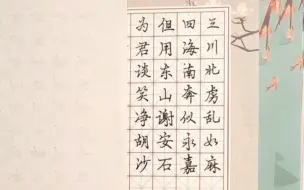 三川北虏乱如麻
四海南奔似永嘉
但用东山谢安石
为君谈笑净胡沙